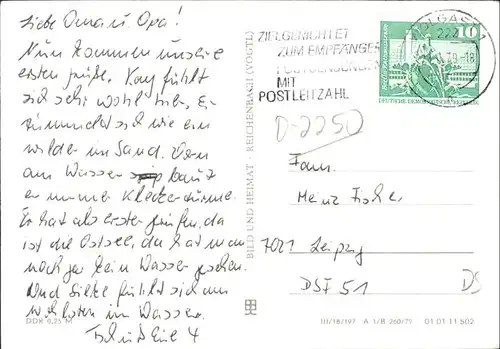 Liebe Oma u. Opa!
Nun kommen unsere
ersten Grüße. Kay fühlt
sich sehr wohl hier. Er
sich wie ein
wilder im Sand. Vorn
am Wasser baut
er immer Kleckertürme.
Er hat als erster gerufen, da
ist die Ostsee, da hat man
noch gar kein Wasser gesehen.
Und Silke fühlt sich am
wohlsten im Wasser.
4
DDR 0,25 M
BILD UND HEIMAT · REICHENBACH (VOGTL)
ZIELGERICHTET
ZUM EMPFÄNGER
POSTSENDUNGEN
MIT
POSTLEITZAHL
WOLGAST 1
222
10
DEUTSCHE DEMOKRATISCHE REPUBLIK
D-2250
Fam.
Heinz Fischer
7021 Leipzig
DSF 51
DS
III/18/197 A 1/B 260/79 01 01 11 502